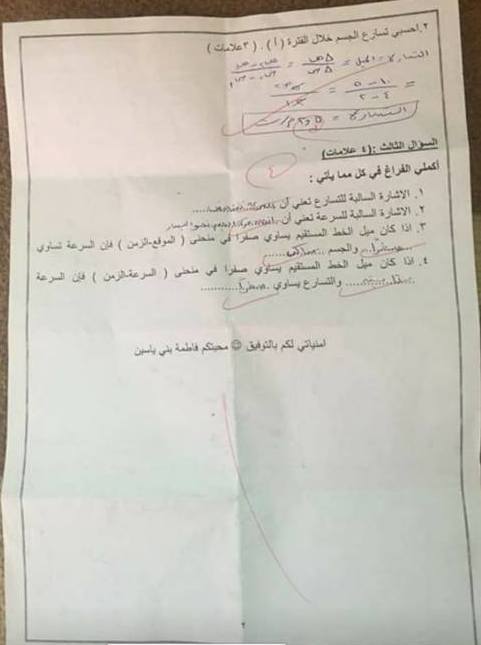 ٢. احسبي تسارع الجسم خلال الفترة ( أ ) . ( ٣ علامات )
التسارع = الميل = Δع / Δز = ع٢ - ع١ / ز٢ - ز١
= ١٠ - ٥ / ٤ - ٢ =
التسارع = ٢,٥ م/ث
السؤال الثالث :( ٤ علامات)
٤
أكملي الفراغ في كل مما يأتي :
١. الاشارة السالبة للتسارع تعني أن
٢. الاشارة السالبة للسرعة تعني أن نحو اليسار
٣. اذا كان ميل الخط المستقيم يساوي صفرا في منحنى ( الموقع-الزمن ) فإن السرعة تساوي
صفرا والجسم ساكن
٤. اذا كان ميل الخط المستقيم يساوي صفرا في منحنى ( السرعة-الزمن ) فإن السرعة
ثابتة والتسارع يساوي صفرا
امنياتي لكم بالتوفيق ☺ محبتكم فاطمة بني ياسين
٢